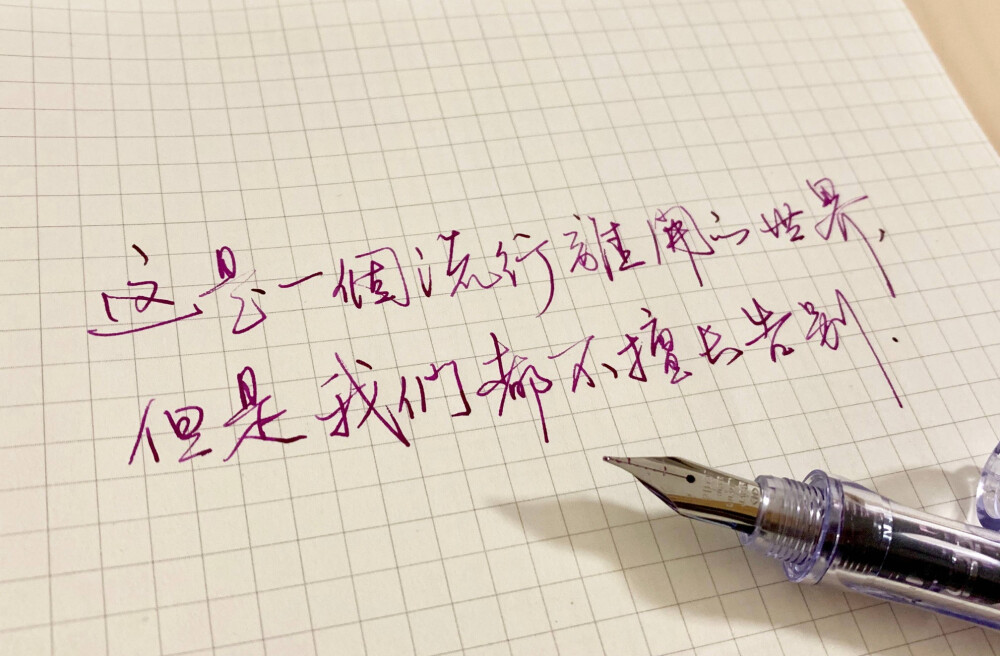 这是一個流行離開的世界,
但是我們都不擅长告别.